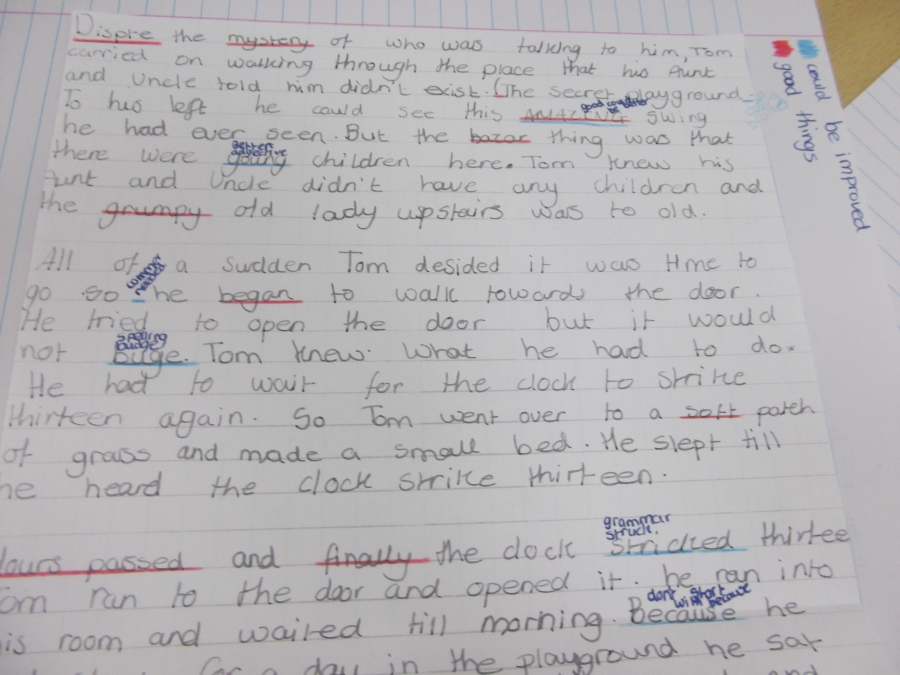 Dispite the mystery of who was talking to him, Tom
carried on walking through the place that his Aunt
and Uncle told him didn't exist. (The secret playground
good
To his left he could see this AMAZING swing
he had ever seen. But the bazar thing was that
better adjective
there were young children here. Tom knew his
Aunt and Uncle didn't have any children and
the grumpy old lady upstairs was to old.
All of a sudden Tom desided it was time to
go so he began to walk towards the door.
He tried to open the door but it would
spelling
budge
not buge. Tom knew. What he had to do.
He had to wait for the clock to strike
thirteen again. So Tom went over to a soft patch
of grass and made a small bed. He slept till
he heard the clock strike thirteen.
grammar
struck.
Hours passed and finally the clock stricked thirtee
om ran to the door and opened it. he ran into
dont start
with because
is room and waited till morning. Because he
for a day in the playground he sat
and
could be improved
good things